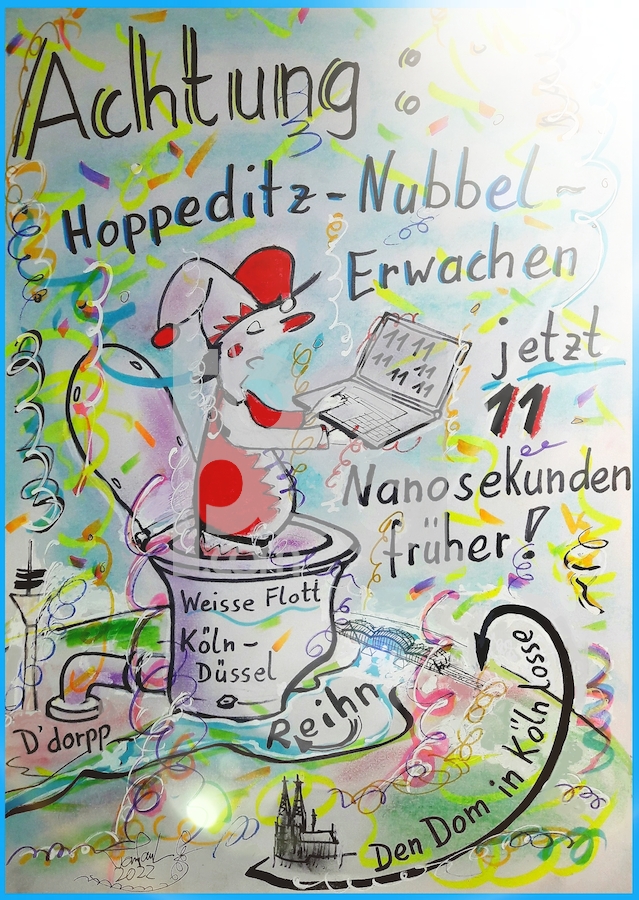 Achtung :
Hoppeditz-Nubbel-
Erwachen
jetzt
11
Nanosekunden
früher!
11 11
11 11
11 11
Weisse Flott
Köln-
Düssel
Reihn
D'dorpp
Den Dom in Köln losse
2022